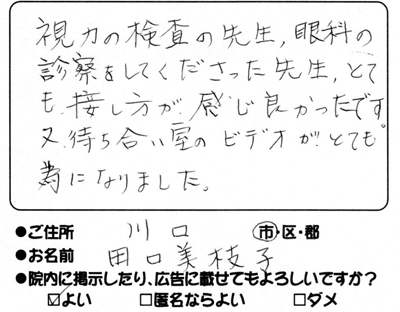 視力の検査の先生,眼科の
診察をしてくださった先生,とて
も接し方が感じ良かったです。
又、待ち合い室のビデオがとても
為になりました。
●ご住所 川口 市・区・郡
●お名前 田口美枝子
●院内に掲示したり、広告に載せてもよろしいですか?
☑よい □匿名ならよい □ダメ